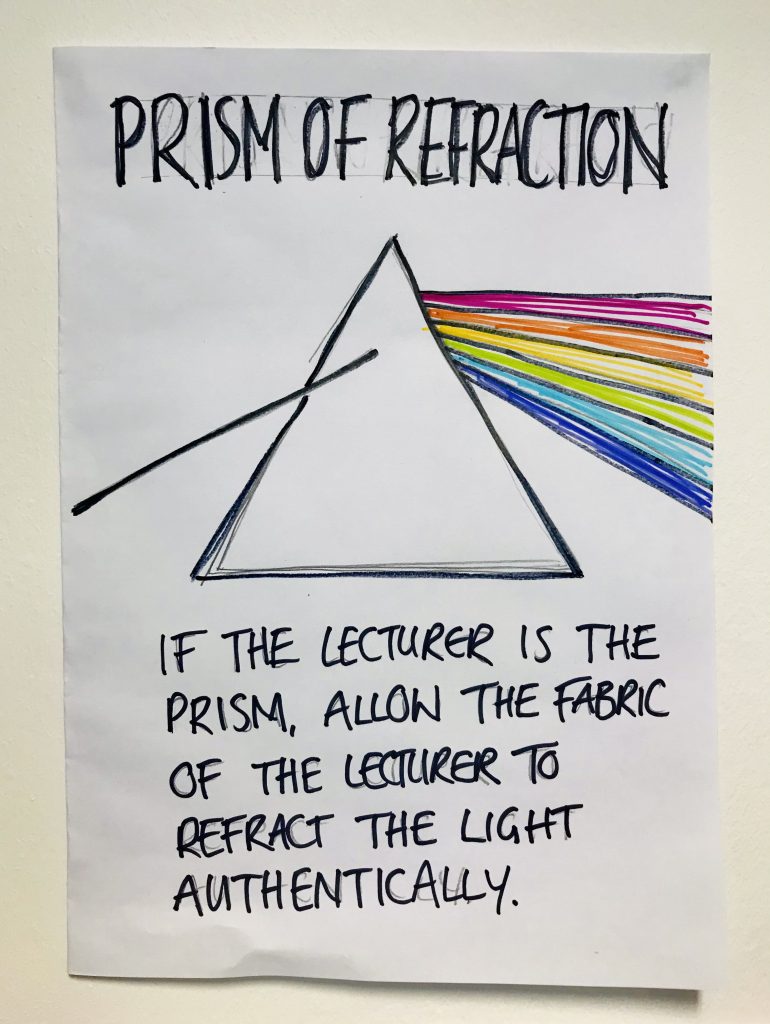 PRISM OF REFRACTION
IF THE LECTURER IS THE
PRISM, ALLOW THE FABRIC
OF THE LECTURER TO
REFRACT THE LIGHT
AUTHENTICALLY.